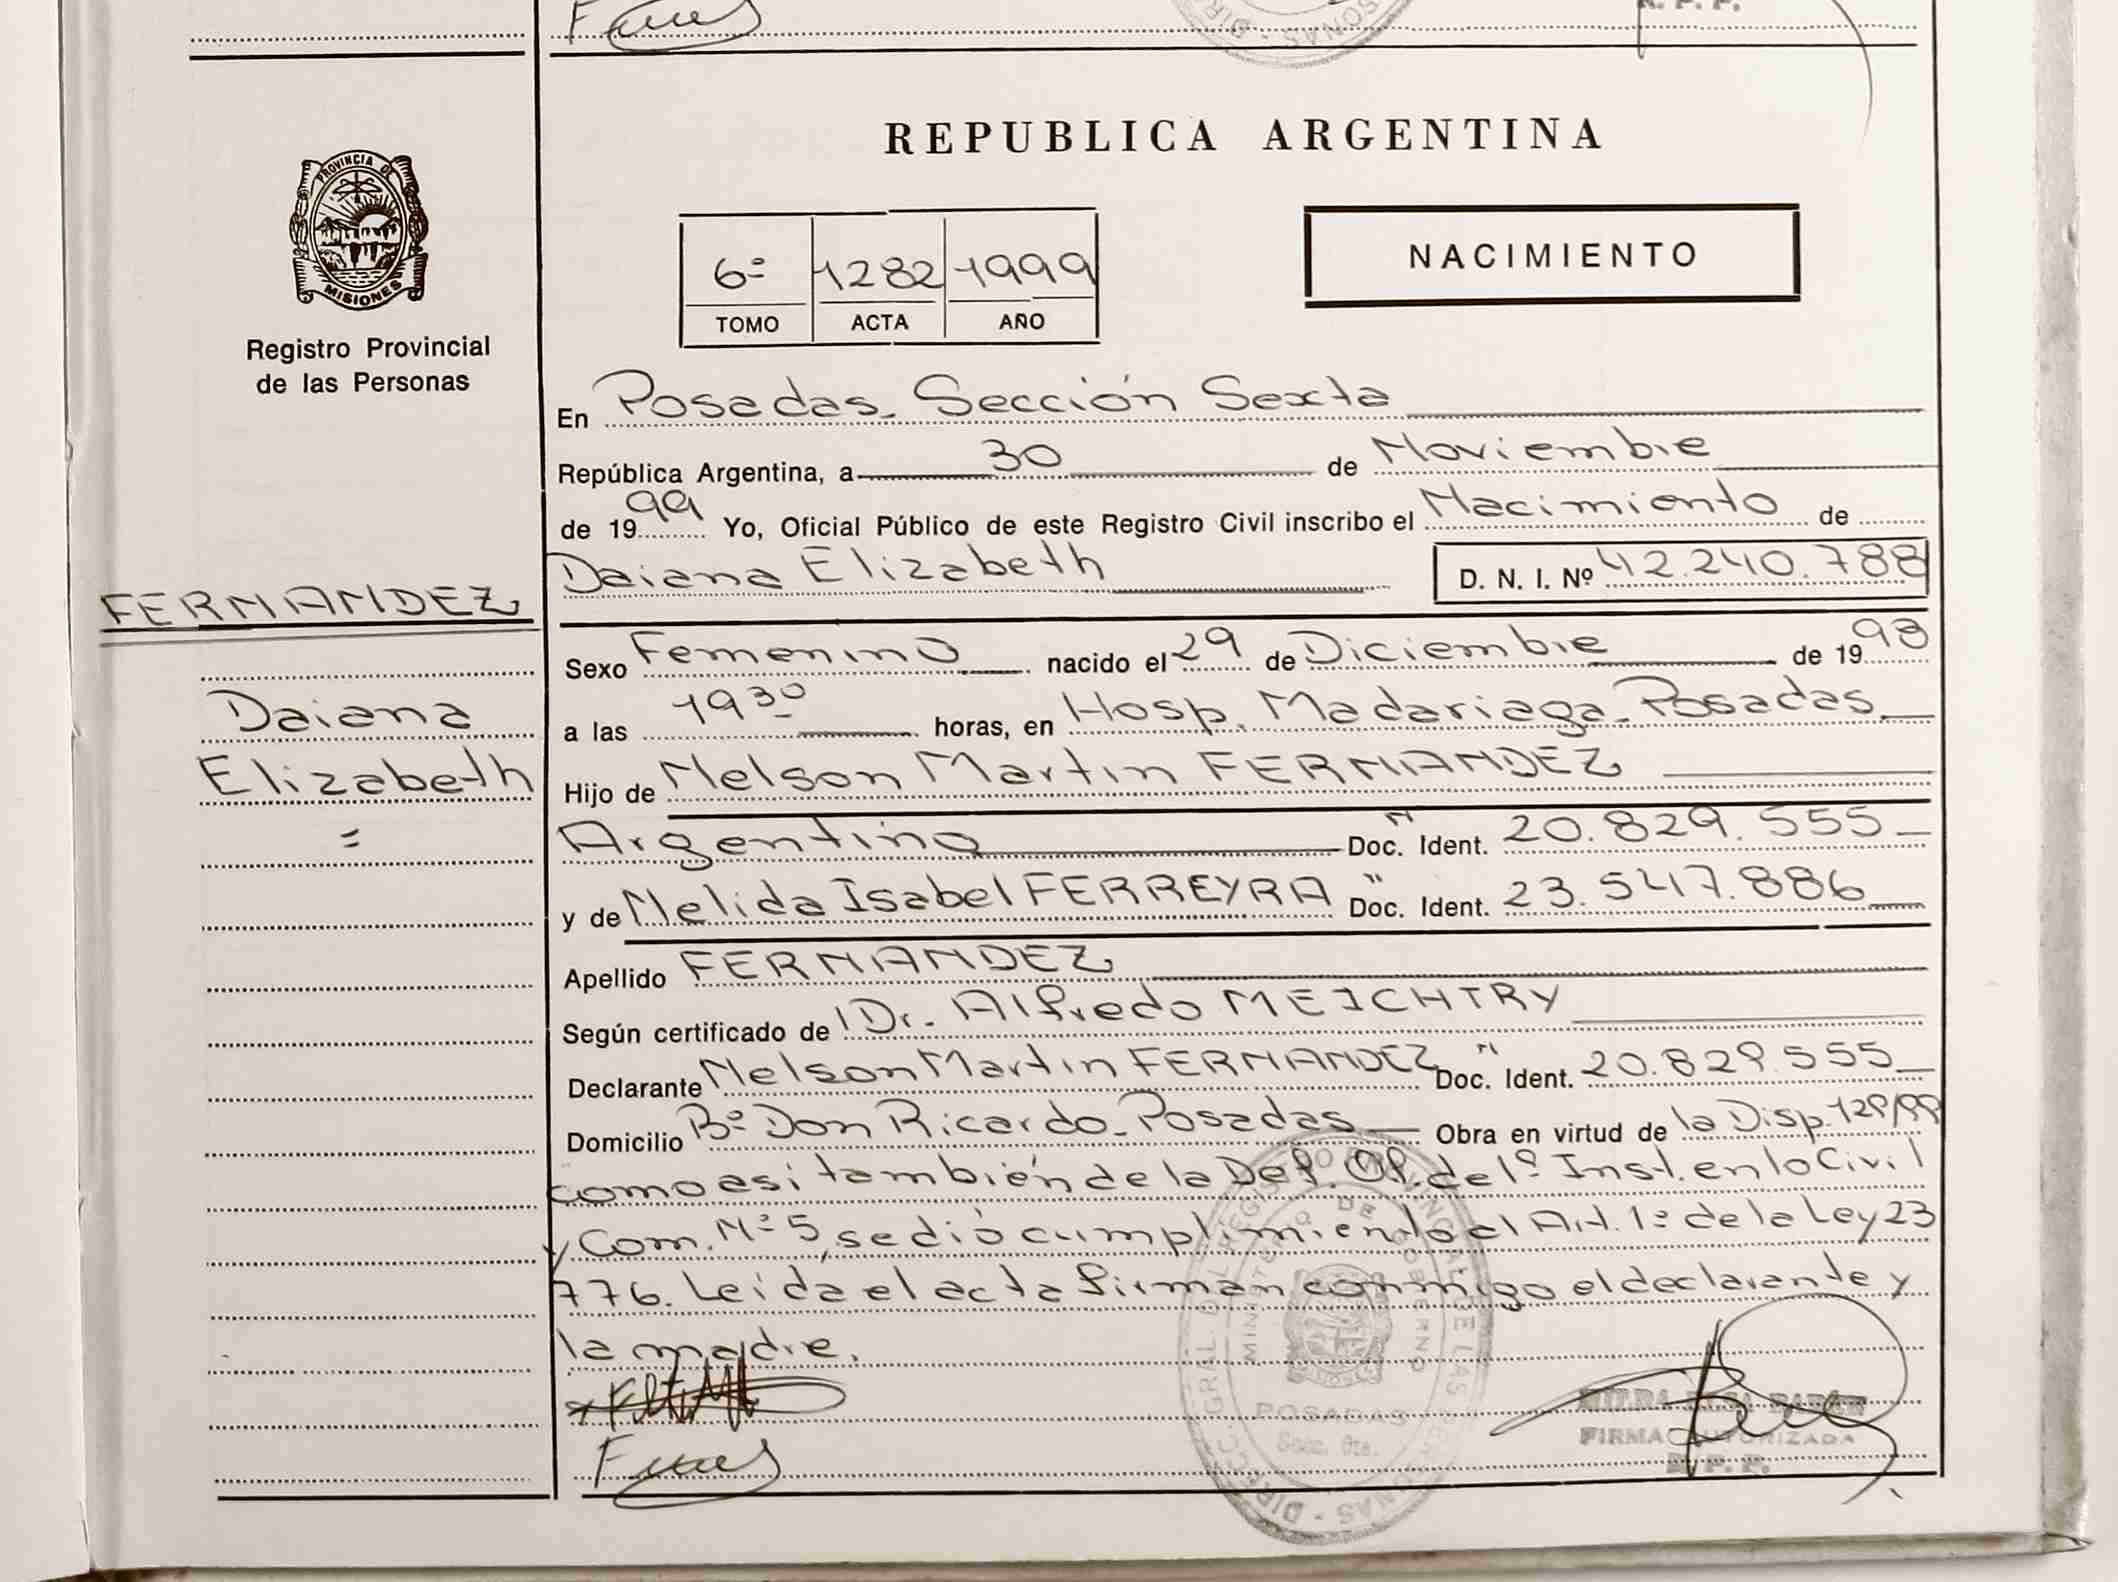 REPUBLICA ARGENTINA
PROVINCIA DE MISIONES
Registro Provincial
de las Personas
6º 1282 1999
TOMO ACTA AÑO
NACIMIENTO
En Posadas. Sección Sexta
República Argentina, a 30 de Noviembre
de 1999 Yo, Oficial Público de este Registro Civil inscribo el Nacimiento de
Daiana Elizabeth D. N. I. Nº 42.240.788
FERNANDEZ
Daiana
Elizabeth
=
Sexo Femenino nacido el 29 de Diciembre de 1998
a las 19 30 horas, en Hosp. Madariaga. Posadas
Hijo de Nelson Martin FERNANDEZ
Argentino Doc. N Ident. 20.829.555
y de Nelida Isabel FERREYRA Doc. " Ident. 23.547.886
Apellido FERNANDEZ
Según certificado de Dr. Alfredo MEICHTRY
Declarante Nelson Martin FERNANDEZ Doc. N Ident. 20.829.555
Domicilio Bº Don Ricardo. Posadas Obra en virtud de la Disp. 129/99
como asi también de la Def. Of. de 1º Inst. en lo Civil
y Com. Nº 5, se dió cumplimiento al Art. 1º de la Ley 23
776. Leida el acta firman conmigo el declarante y
la madre.
DIRECC. GRAL. DEL REGISTRO PROVINCIAL DE LAS PERSONAS
MINISTERIO DE GOBIERNO
POSADAS
Secc. 6ta.
FIRMA AUTORIZADA
R. P. P.